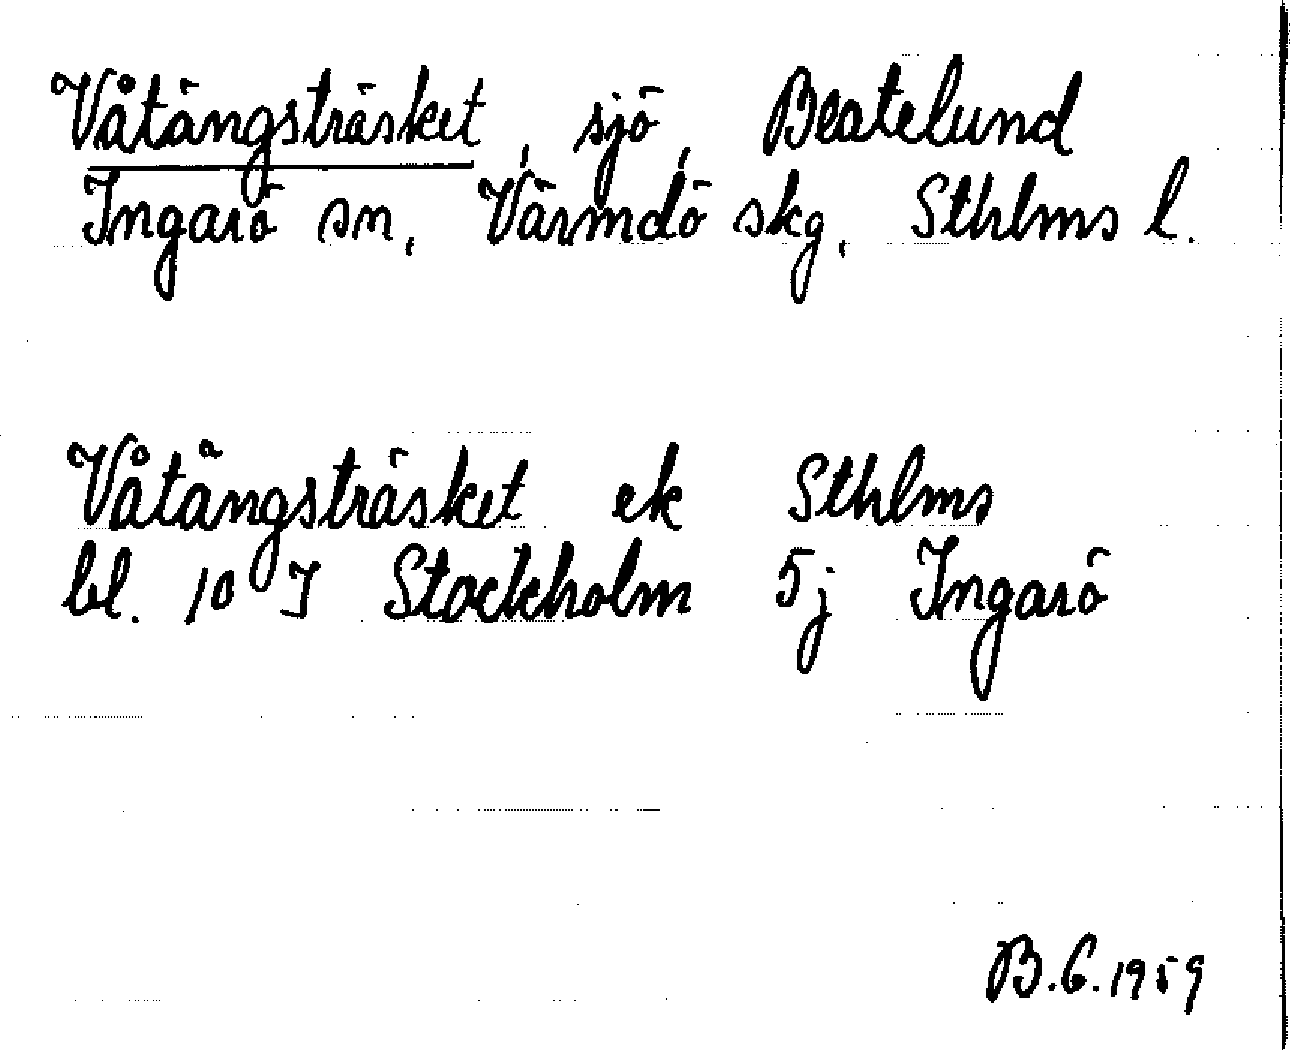 Våtängsträsket, sjö, Beatelund
Ingarö sn, Värmdö skg, Sthlms l.
Våtängsträsket ek Sthlms
bl. 10 I Stockholm 5j Ingarö
B.G. 1959